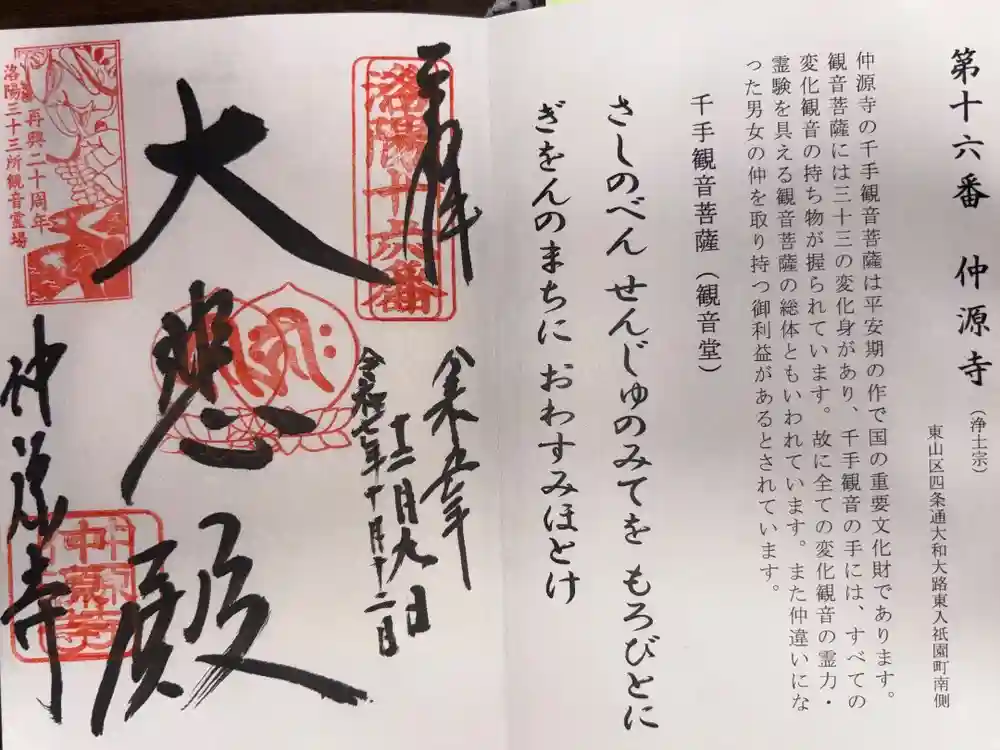 第十六番 仲源寺（浄土宗）
東山区四条通大和大路東入祇園町南側
仲源寺の千手観音菩薩は平安期の作で国の重要文化財であります。
観音菩薩には三十三の変化身があり、千手観音の手には、すべての
変化観音の持ち物が握られています。故に全ての変化観音の霊力・
霊験を具える観音菩薩の総体ともいわれています。また仲違いにな
った男女の仲を取り持つ御利益があるとされています。
千手観音菩薩（観音堂）
さしのべん せんじゅのみてを もろびとに
ぎをんのまちに おわすみほとけ
奉拝
洛陽十六番
十二月九日
令和七年十月十二日
大悲殿
再興二十周年
洛陽三十三所観音霊場
仲源寺